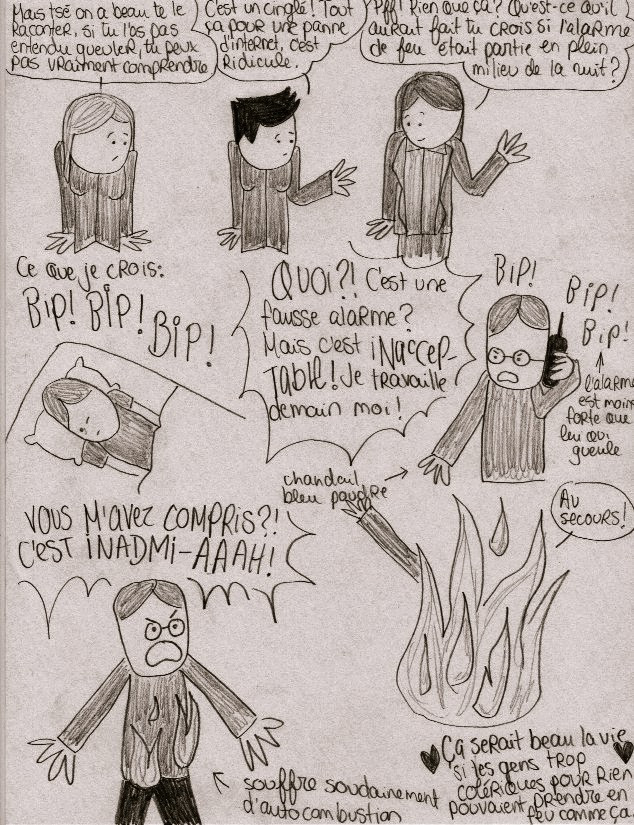 Mais tsé on a beau te le
Raconter, si tu l'as pas
entendu gueuler, tu peux
pas vraiment comprendre
C'est un cinglé! Tout
ça pour une panne
d'internet, c'est
Ridicule.
Pff! Rien que ça? Qu'est-ce qu'il
aurait fait tu crois si l'alarme
de feu était partie en plein
milieu de la nuit?
Ce que je crois:
Bip! Bip!
Bip!
QUOI?! C'est une
fausse alarme?
Mais c'est iNaccep-
Table! Je travaille
demain moi!
BiP!
BiP!
Bip!
l'alarme
est moins
forte que
lui qui
gueule
chandail
bleu poudre
VOUS M'AVEZ COMPRIS?!
C'EST INADMI-AAAH!
Au
secours!
souffre soudainement
d'autocombustion
Ça serait beau la vie
si les gens trop
colériques pour Rien
pouvaient prendre en
feu comme ça